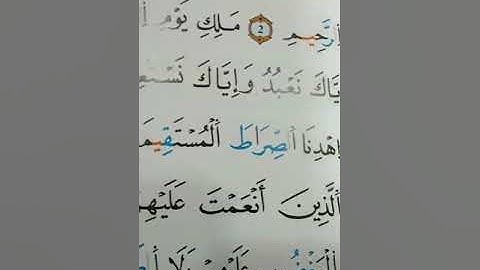 اِ۬لرَّحِيمِ 2 مَلِكِ يَوْمِ
يَّاكَ نَعْبُدُ وَإِيَّاكَ نَسْتَعِ
اِهْدِنَا اَ۬لصِّرَاطَ اَ۬لْمُسْتَقِيمَ
اَ۬لَّذِينَ أَنْعَمْتَ عَلَيْهِ
عَلَيْهِمْ وَلَا